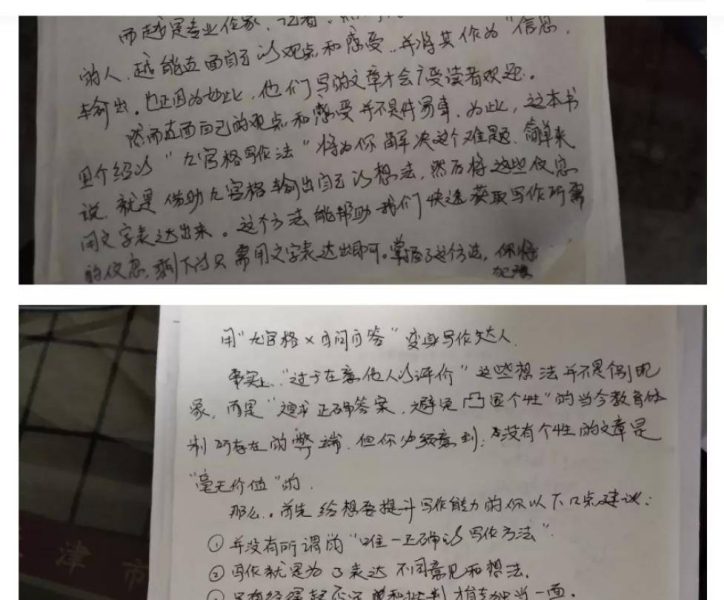 而越是专业作家、记者、
的人，越能直面自己的观点和感受，并将其作为“信息”
输出。也正因为如此，他们写的文章才会广受读者欢迎。
然而直面自己的观点和感受并不是件易事，为此，这本书
介绍的“九宫格写作法”将为你解决这个难题，简单来
说，就是借助九宫格输出自己的想法，然后将这些信息
用文字表达出来。这个方法能帮助我们快速获取写作所需
的信息，剩下的只需用文字表达出即可。掌握了这个方法，你将
用“九宫格×自问自答”变身写作达人
事实上“过于在意他人的评价”这些想法并不是个别现
象，而是“追求正确答案，避免凸显个性”的当今教育体
制所存在的弊端，但你必须意识到：没有个性的文章是
“毫无价值”的.
那么，首先给想要提升写作能力的你以下几点建议：
①并没有所谓的“唯一正确的写作方法”.
②写作就是为了表达不同意见和想法.
津市